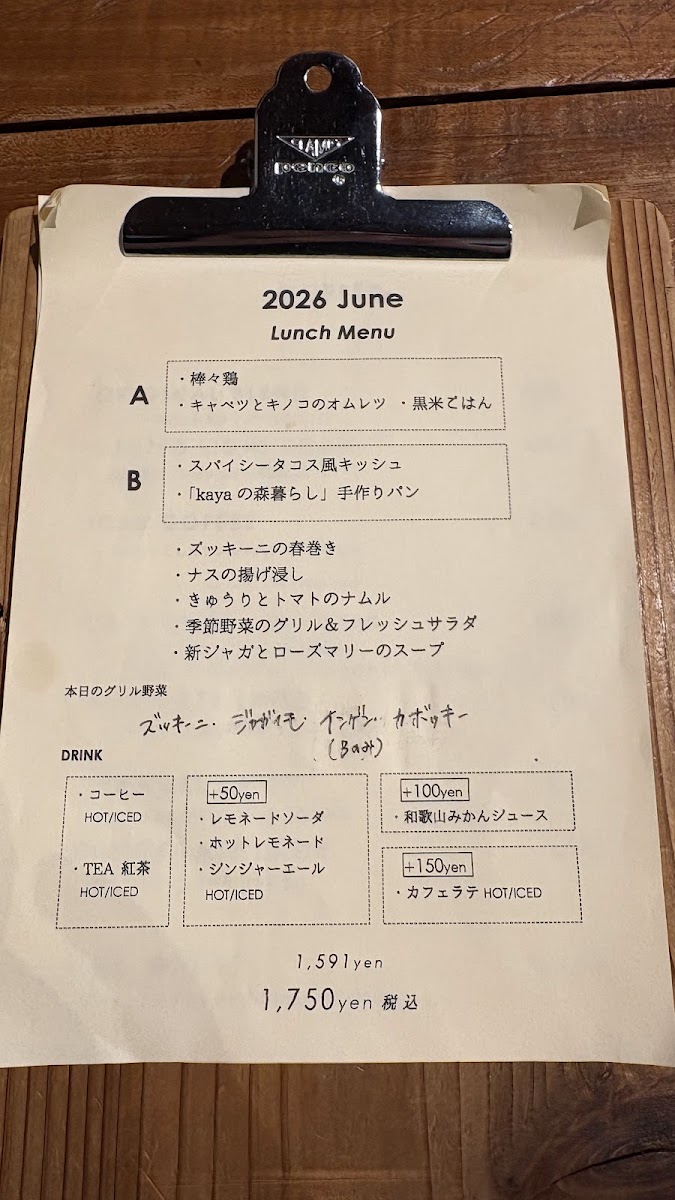 penco
2026 June
Lunch Menu
A
・棒々鶏
・キャベツとキノコのオムレツ ・黒米ごはん
B
・スパイシータコス風キッシュ
・「kaya の森暮らし」手作りパン
・ズッキーニの春巻き
・ナスの揚げ浸し
・きゅうりとトマトのナムル
・季節野菜のグリル＆フレッシュサラダ
・新ジャガとローズマリーのスープ
本日のグリル野菜
ズッキーニ・ジャガイモ・インゲン・カボッキー
(Bのみ)
DRINK
・コーヒー
HOT/ICED
・TEA 紅茶
HOT/ICED
+50yen
・レモネードソーダ
・ホットレモネード
・ジンジャーエール
HOT/ICED
+100yen
・和歌山みかんジュース
+150yen
・カフェラテ HOT/ICED
1,591yen
1,750yen 税込